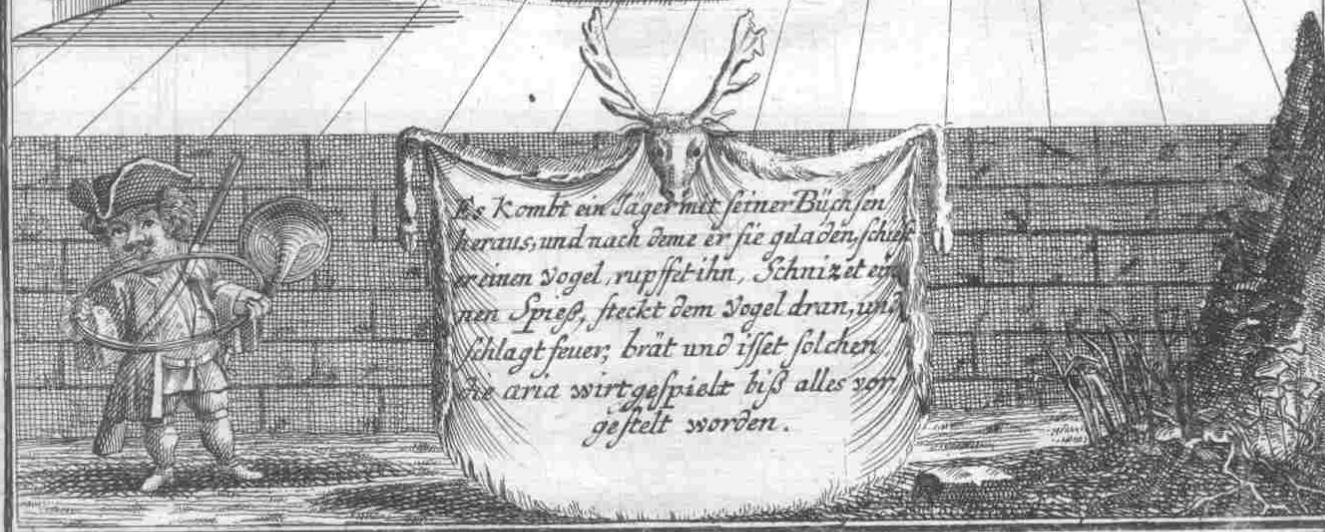 Es Kombt ein Jäger mit seiner Büchsen
heraus, und nach deme er sie geladen, schiest
er einen Vogel, rupffet ihn, Schnizet ein
nen Spieß, steckt dem Vogel dran, und
schlagt feuer, brät und isset solchen
die aria wirt gespielt biß alles vor
gestelt worden.